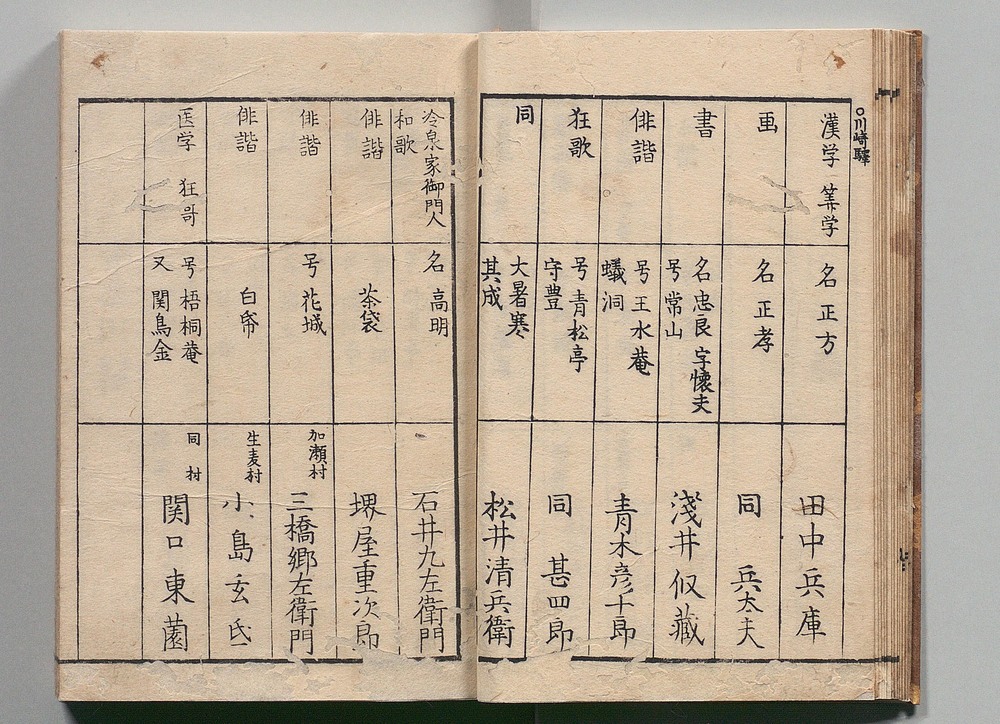 ○川崎驛
漢学 筭学
名 正方
田中兵庫
画
名 正孝
同 兵太夫
書
名 忠良 字懐夫
号 常山
淺井仭藏
俳諧
号 王水菴
蟻洞
青木彦十郎
狂歌
号 青松亭
守豊
同 甚四郎
同
大暑寒
其成
松井清兵衛
冷泉家御門人
和歌
名 高明
石井九左衛門
俳諧
茶袋
堺屋重次郎
俳諧
号 花城
加瀬村
三橋郷左衛門
俳諧
白
生麦村
小島玄氏
医学 狂哥
号 梧桐菴
又 関鳥金
同村
関口東園